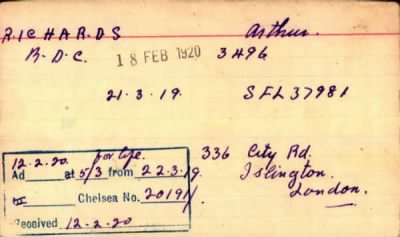 RICHARDS Arthur.
R.D.C. 18 FEB 1920 3496
21.3.19. SFL37981
12.2.20. for life.
Ad at 5/3 from 22.3.19.
III Chelsea No. 20191/
Received 12-2-20
336 City Rd.
Islington.
London.